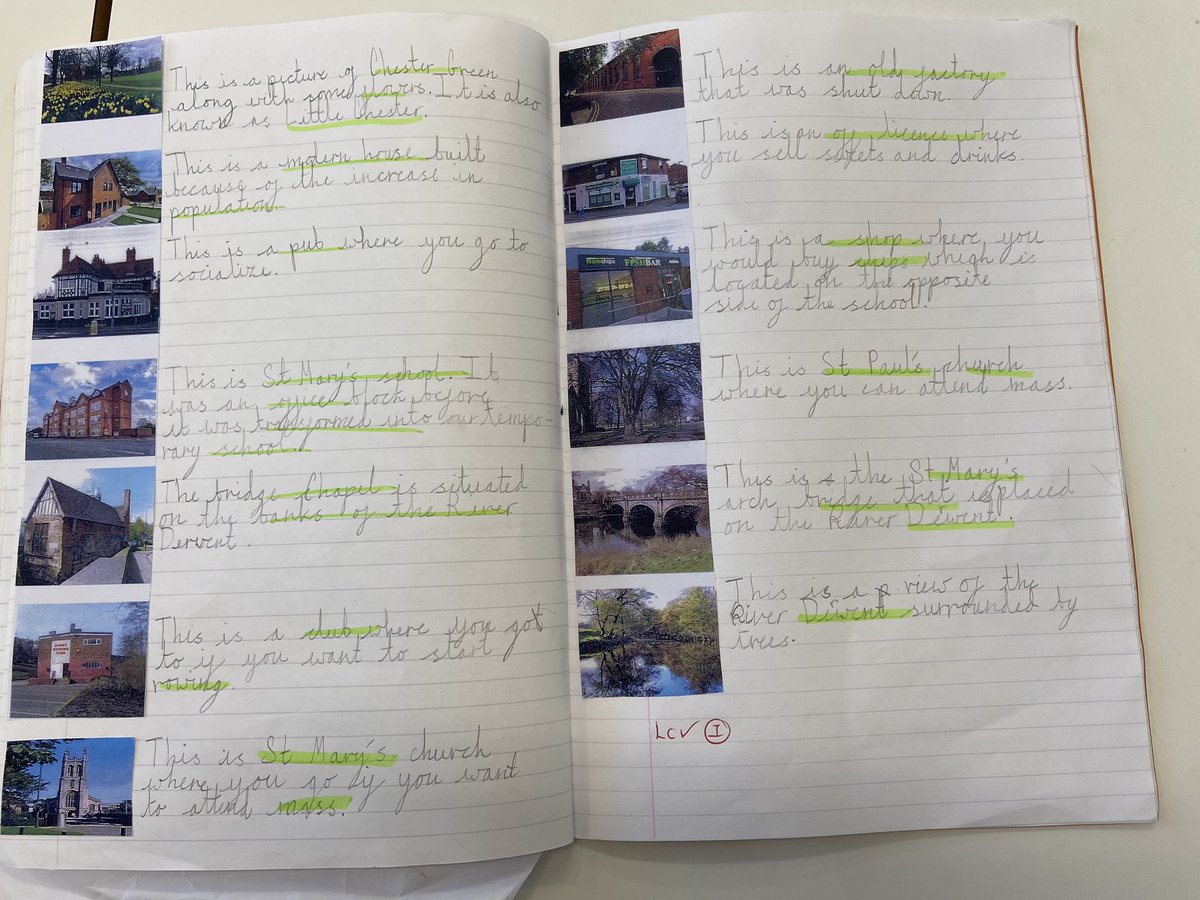 This is a picture of Chester Green
along with some flowers. It is also
known as Little Chester.
This is a modern house built
because of the increase in
population.
This is a pub where you go to
socialize.
This is St Mary's school. It
was an office block before
it was transformed into our tempo-
rary school.
The bridge Chapel is situated
on the banks of the River
Derwent.
This is a club where you got
to if you want to start
rowing.
This is St Mary's church
where you go if you want
to attend mass.
This is an old factory
that was shut down.
This is an off licence where
you sell and drinks.
FISHBAR
This is a shop where you
would buy which is
located on the opposite
side of the school.
This is St Paul's church
where you can attend mass.
This is the St Mary's
arch bridge that is placed
on the River Dewent.
This is a view of the
River Dewent surrounded by
trees.
LC✓ I